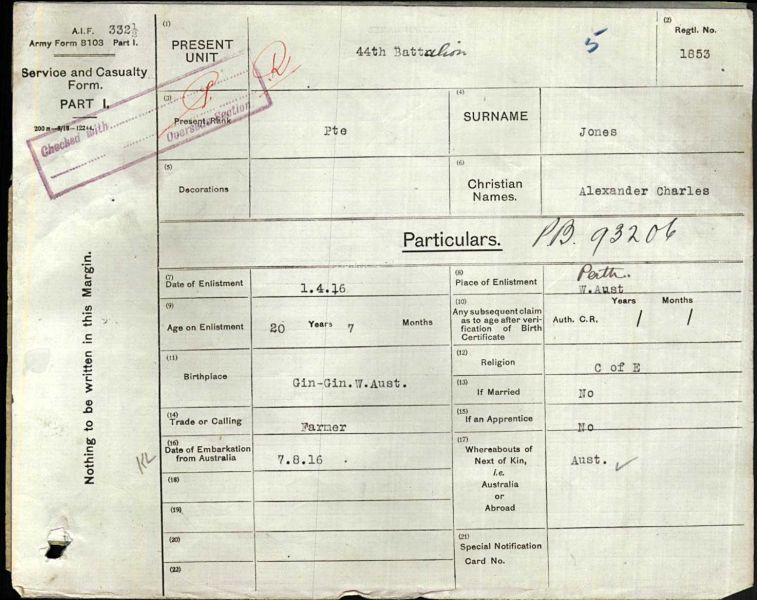 A.I.F. 332½
Army Form B103 Part I.
Service and Casualty
Form.
PART I.
Checked with
Overseas Section
Nothing to be written in this Margin.
(1)
PRESENT
UNIT
44th Battalion
5
(2)
Regtl. No.
1853
P. R
(3)
Present Rank
Pte
(4)
SURNAME
Jones
(5)
Decorations
(6)
Christian
Names.
Alexander Charles
Particulars.
PB. 93206
(7)
Date of Enlistment
1.4.16
(8)
Place of Enlistment
Perth.
W.Aust
(9)
Age on Enlistment
20 Years 7 Months
(10)
Any subsequent claim
as to age after veri-
fication of Birth
Certificate
Auth. C.R.
Years Months
/ /
(11)
Birthplace
Gin-Gin.W.Aust.
(12)
Religion
C of E
(13)
If Married
No
(14)
Trade or Calling
Farmer
(15)
If an Apprentice
No
(16)
Date of Embarkation
from Australia
7.8.16
(17)
Whereabouts of
Next of Kin,
i.e.
Australia
or
Abroad
Aust. ✓
(18)
(19)
(20)
(21)
Special Notification
Card No.
(22)